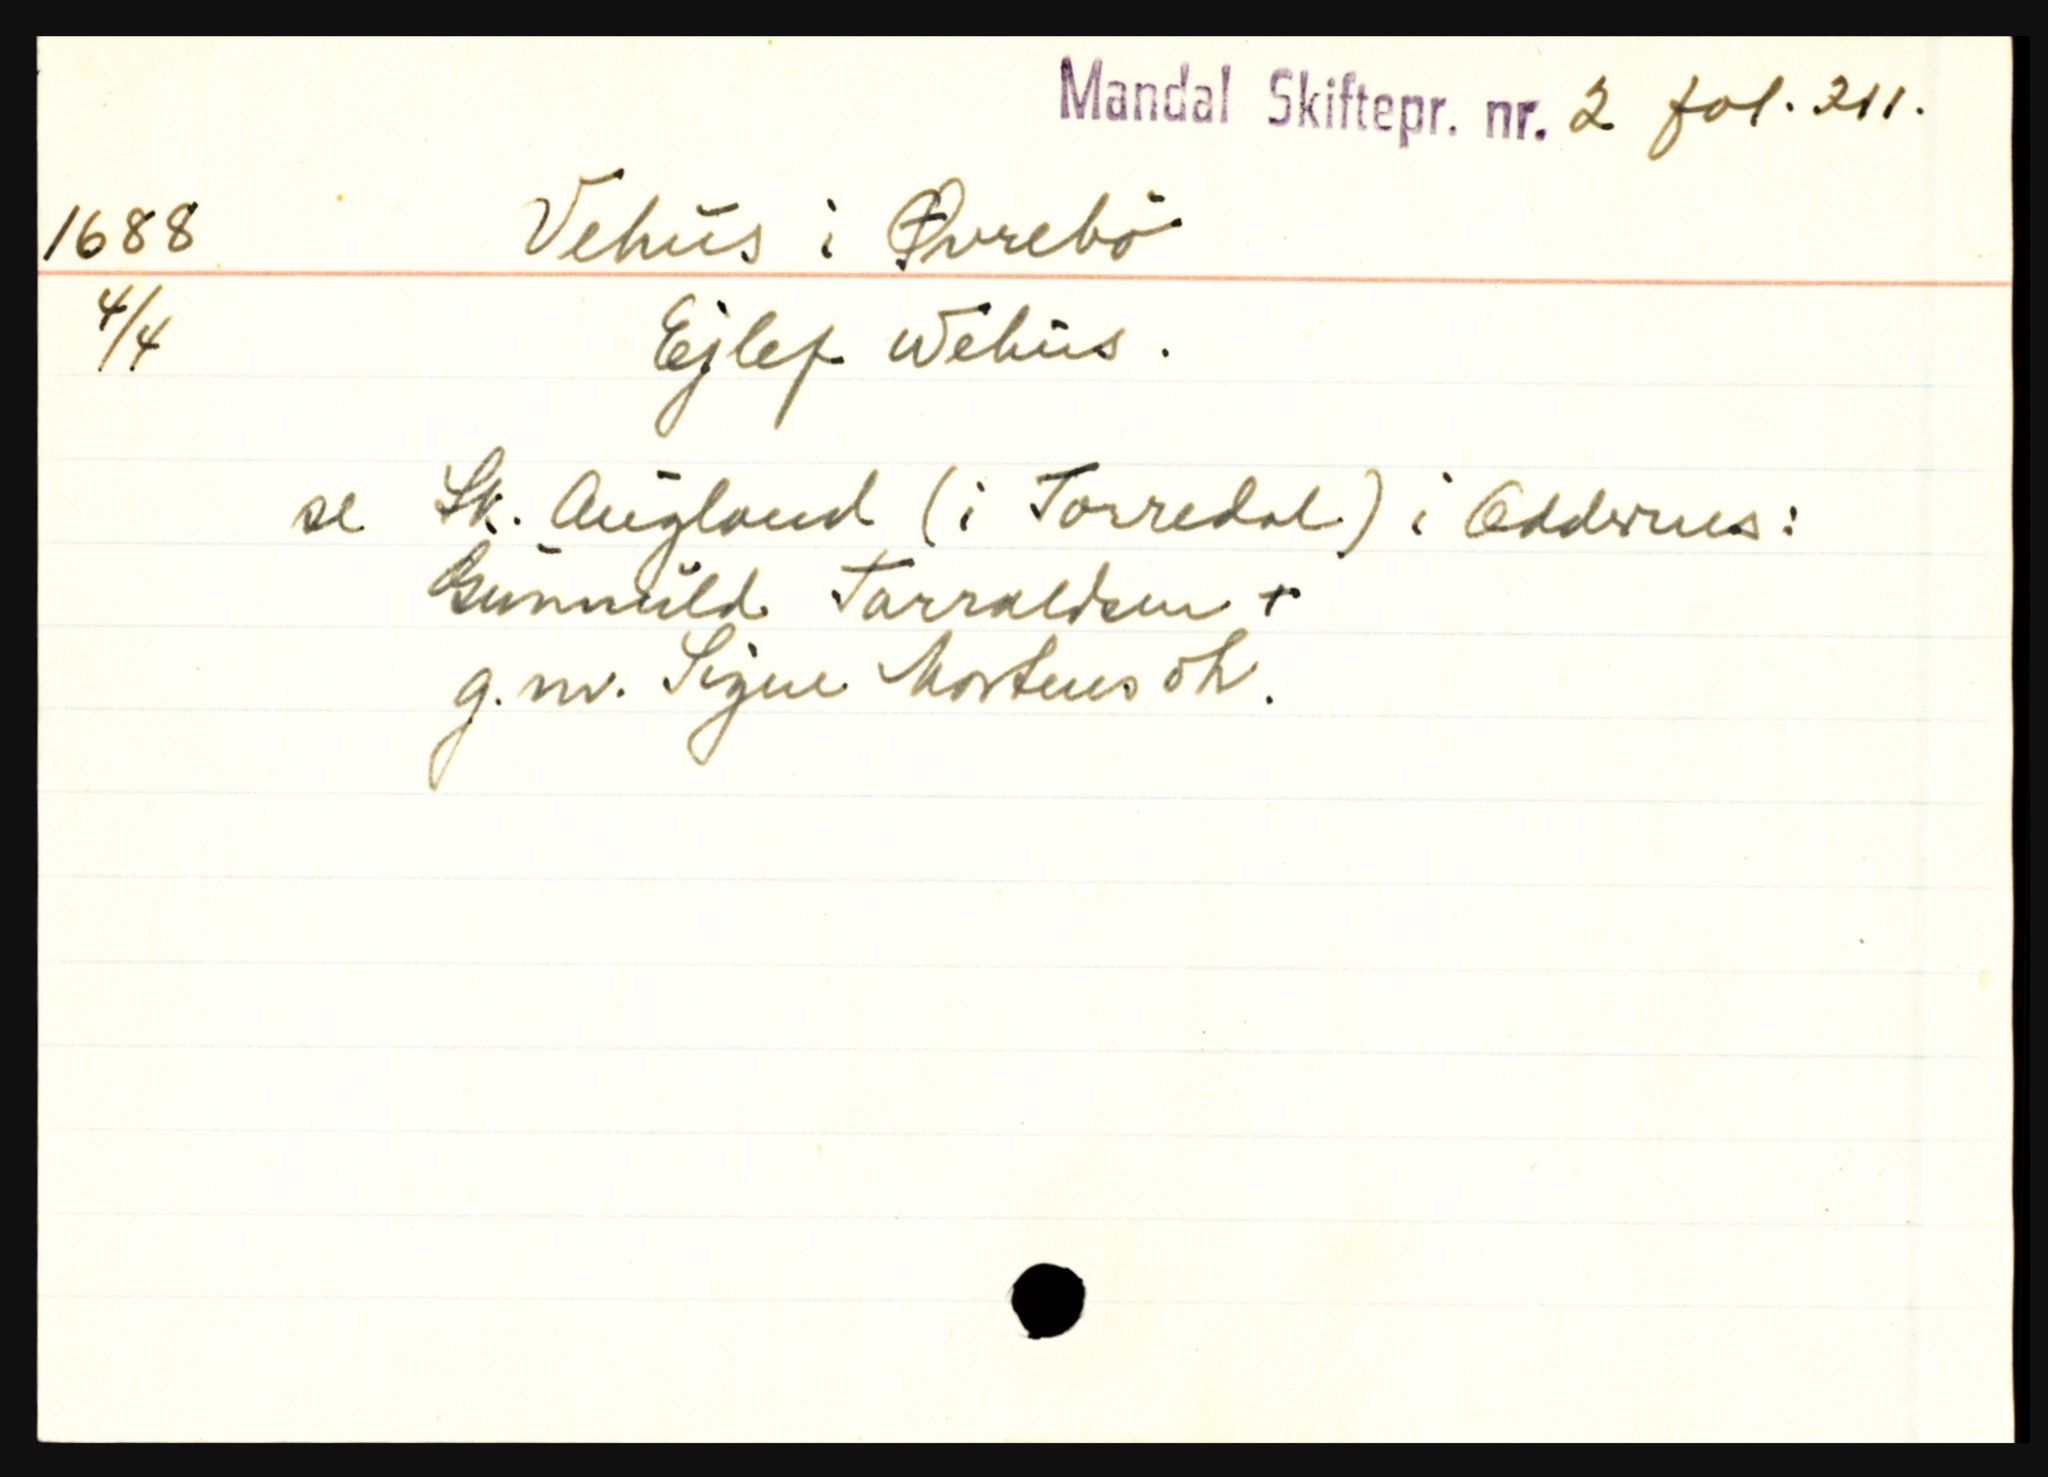 Mandal Skiftepr. nr. 2 fol. 211.
1688 Vehus i Øvrebö
4/4 Ejlef Wehus.
se Sk. Augland (i Torredal) i Oddernes:
Gunnuld Tarraldsen +
g.m. Signe Mortensdtr.